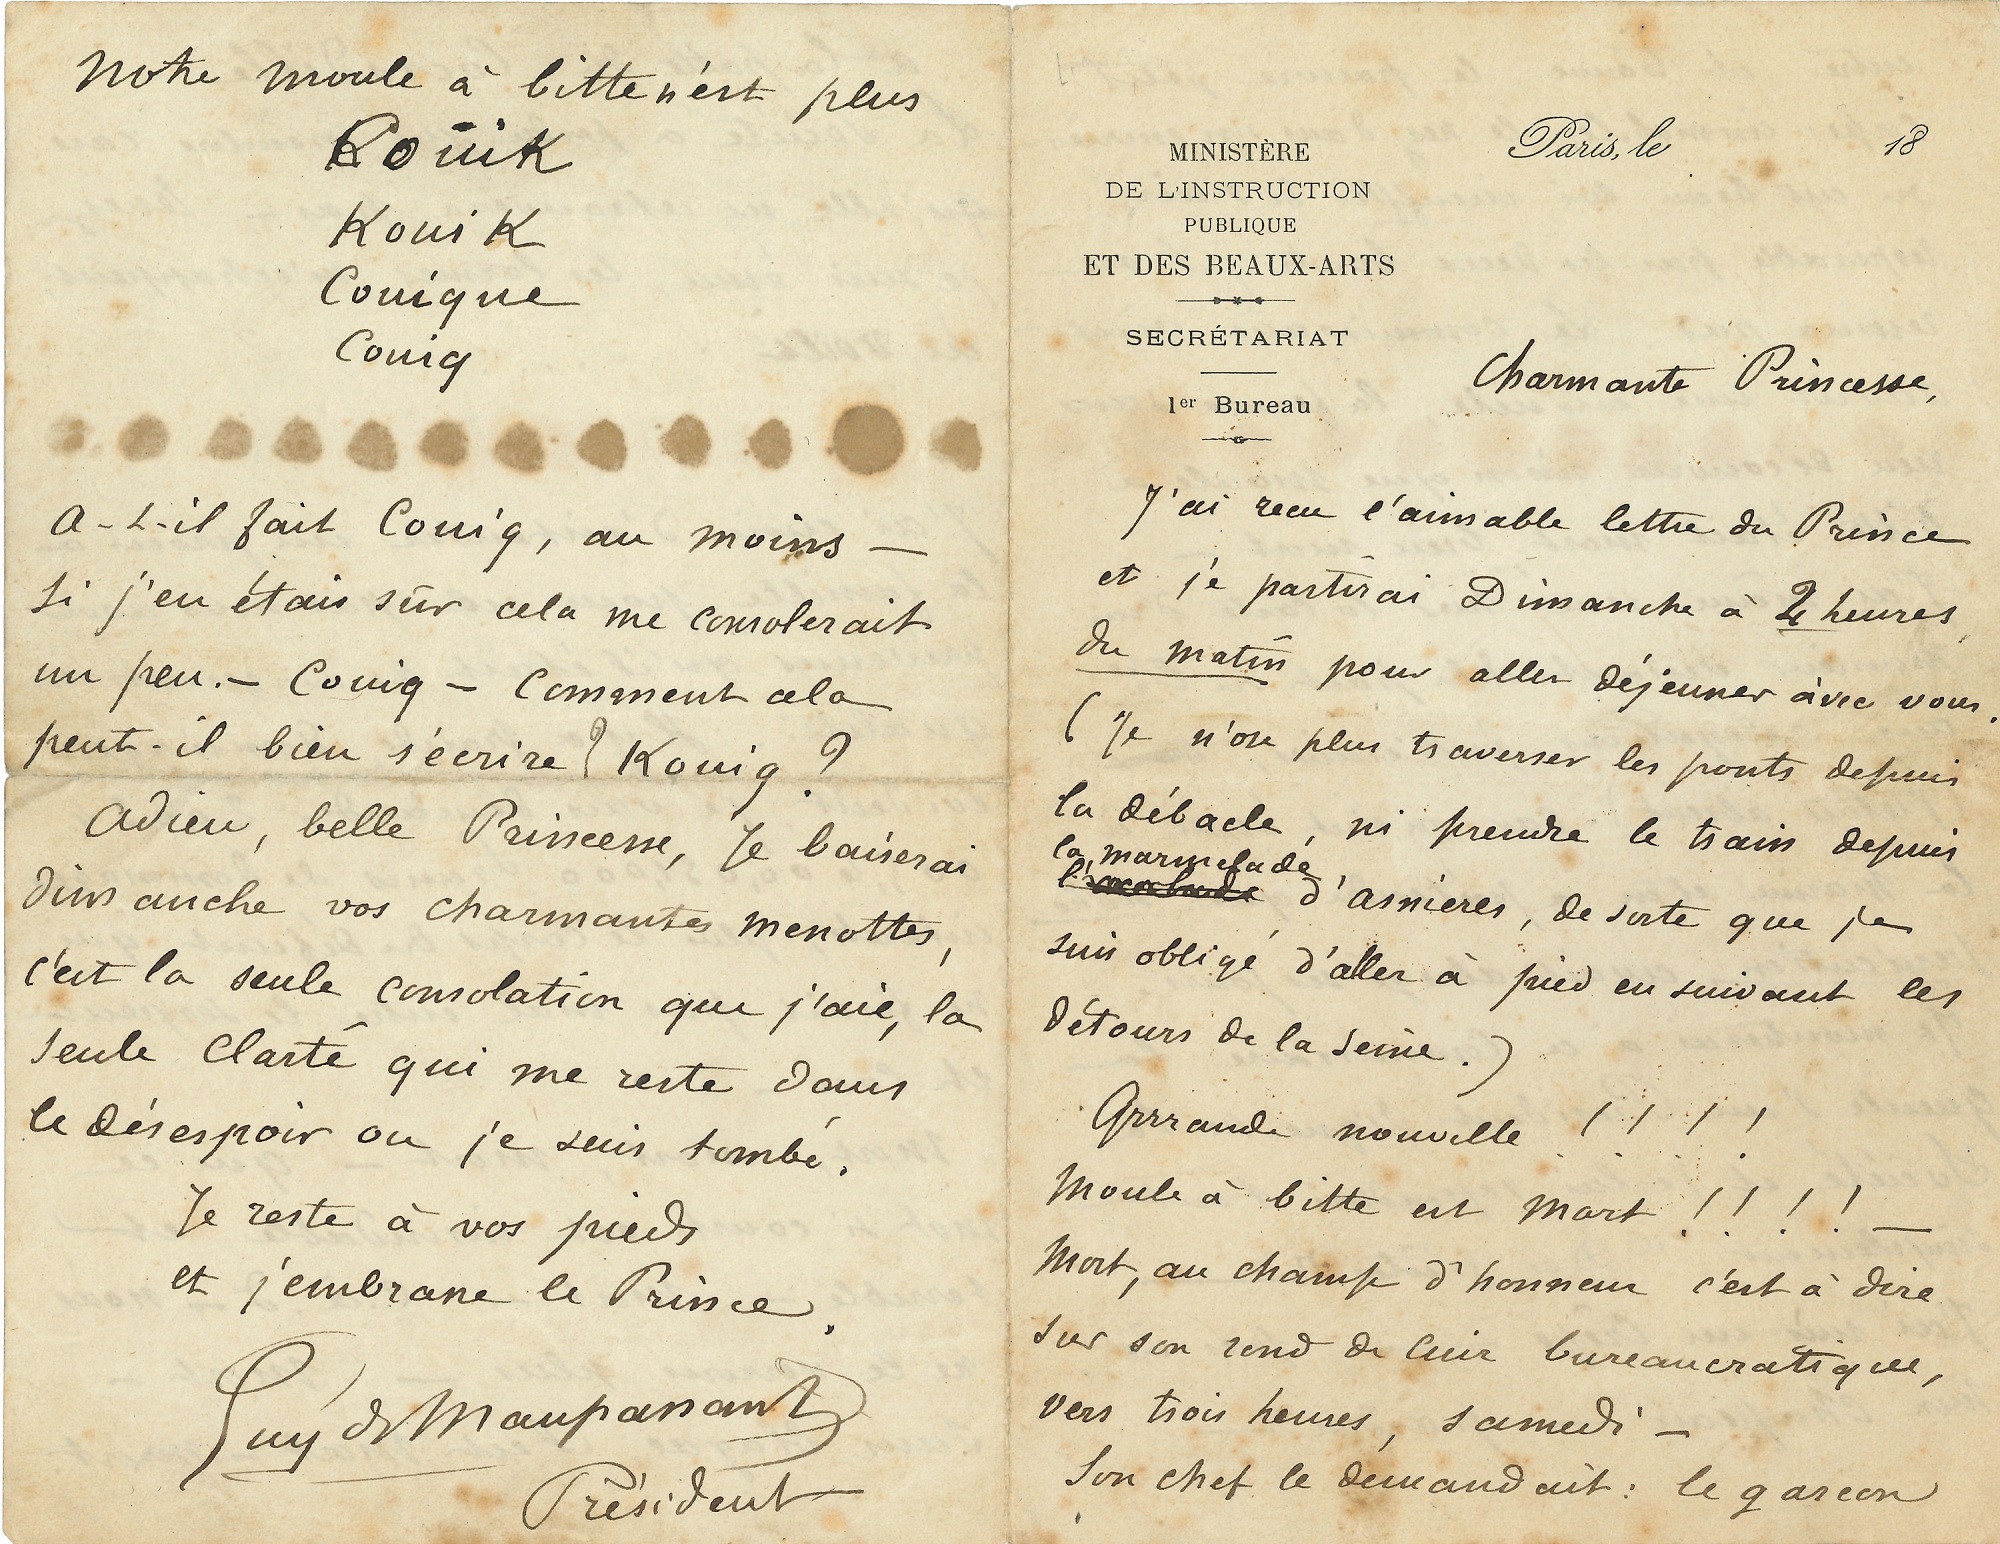 MINISTÈRE
DE L'INSTRUCTION
PUBLIQUE
ET DES BEAUX-ARTS
SECRÉTARIAT
1er Bureau
Paris, le 18
Charmante Princesse,
J'ai recu l'aimable lettre du Prince
et je partirai Dimanche à 2 heures
du matin pour aller déjeuner avec vous.
(Je n'ose plus traverser les ponts depuis
la débacle, ni prendre le train depuis
la marmelade
d'asnieres, de sorte que je
suis obligé d'aller à pied en suivant les
détours de la Seine.)
Grrrande nouvelle !!!!
Moule à bitte est Mort !!!! —
Mort, au champ d'honneur c'est à dire
sur son rond de cuir bureaucratique,
vers trois heures, samedi —
Son chef le demandait : le garcon
Notre moule à bitte n'est plus
Kouik
Couique
Couiq
a-t-il fait Couiq, au moins —
si j'en étais sûr cela me consolerait
un peu. — Couiq — Comment cela
peut-il bien s'écrire ? Kouiq ?
Adieu, belle Princesse, Je baiserai
dimanche vos charmantes menottes,
c'est la seule consolation que j'aie, la
seule clarté qui me reste dans
le désespoir ou je suis tombé.
Je reste à vos pieds
et j'embrasse le Prince.
Guy de Maupassant
Président